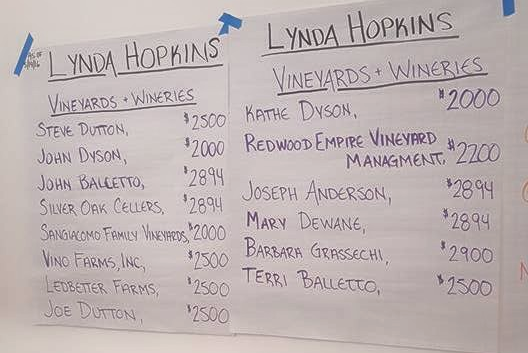 AS OF
LYNDA HOPKINS
VINEYARDS + WINERIES
STEVE DUTTON, $2500
JOHN DYSON, $2000
JOHN BALLETTO, $2894
SILVER OAK CELLERS, $2894
SANGIACOMO FAMILY VINEYARDS, $2000
VINO FARMS, INC, $2500
LEDBETTER FARMS, $2500
JOE DUTTON, $2500
LYNDA HOPKINS
VINEYARDS + WINERIES
KATHE DYSON, $2000
REDWOOD EMPIRE VINEYARD
MANAGMENT, $2200
JOSEPH ANDERSON, $2894
MARY DEWANE, $2894
BARBARA GRASSECHI, $2900
TERRI BALLETTO, $2500